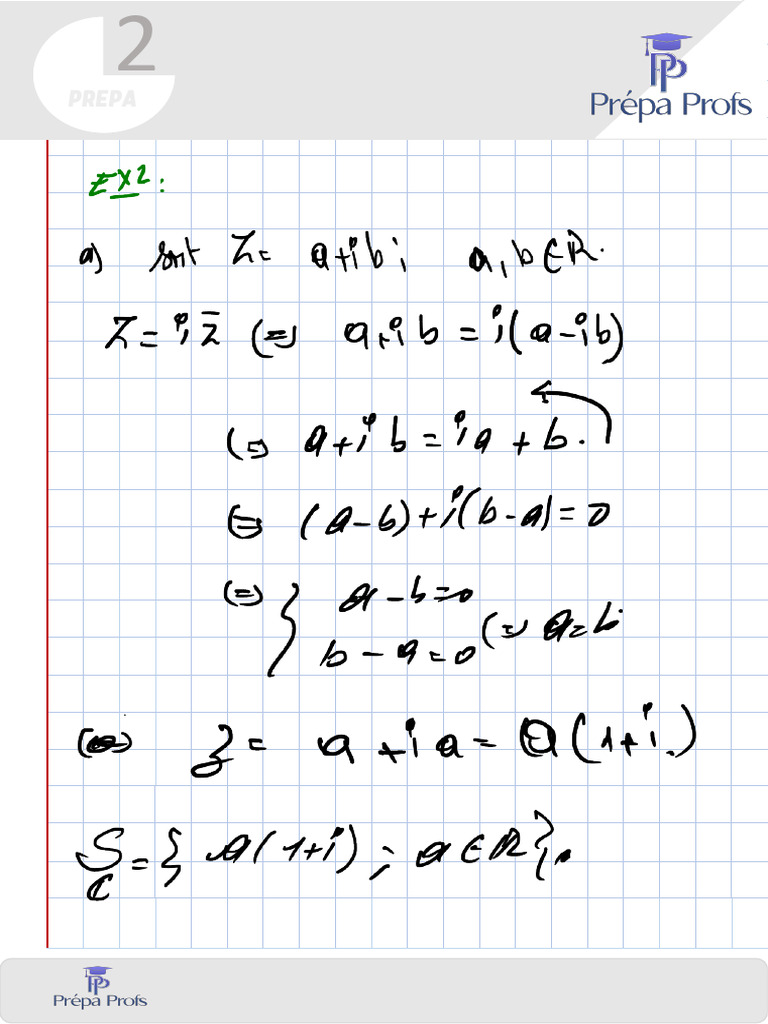 2
PREPA
Prépa Profs
EX2:
a) soit Z= a+ib; a,b∈ℝ.
Z = i z̄ (=) a+ib = i(a-ib)
(=) a+ib = ia + b.
(=) (a-b)+i(b-a)=0
(=) { a-b=0
b-a=0 (=) a=b
(=) z = a+ia = a(1+i)
S_ℂ = { a(1+i) ; a∈ℝ }.
Prépa Profs